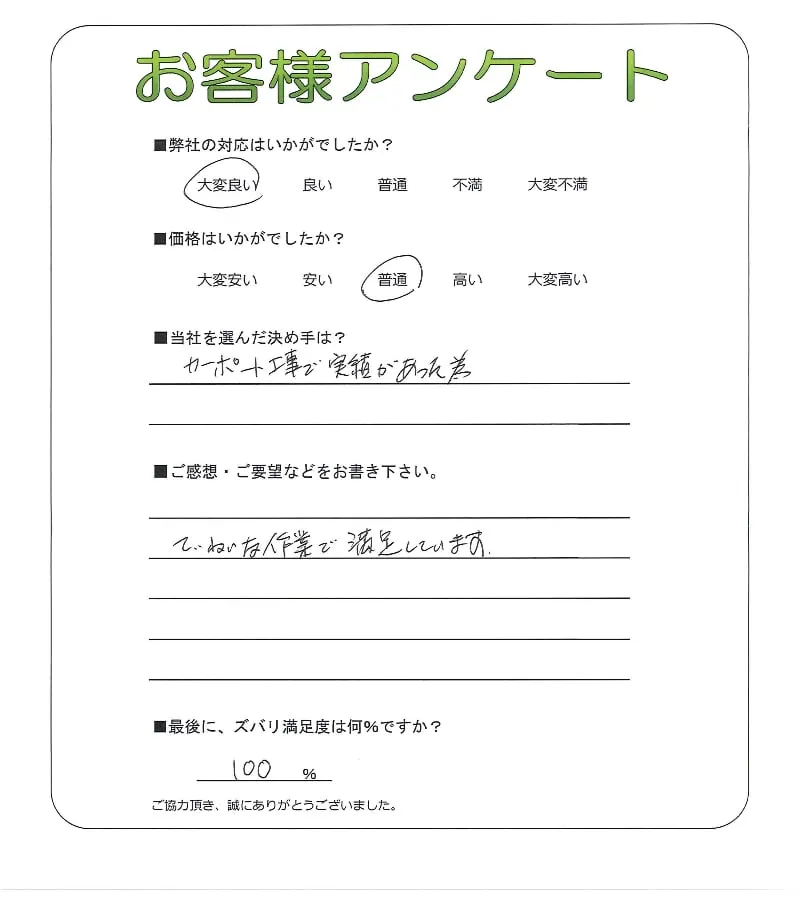 お客様アンケート
■弊社の対応はいかがでしたか？
大変良い 良い 普通 不満 大変不満
■価格はいかがでしたか？
大変安い 安い 普通 高い 大変高い
■当社を選んだ決め手は？
カーポート工事で実績があった為
■ご感想・ご要望などをお書き下さい。
ていねいな作業で満足しています.
■最後に、ズバリ満足度は何%ですか？
100 %
ご協力頂き、誠にありがとうございました。